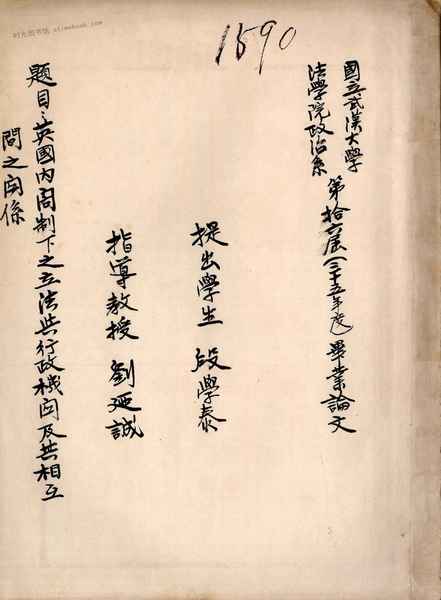 时光图书馆 stimebook.com
1590
國立武漢大學
法學院政治系
第拾六屆(三十五年度)畢業論文
提出學生 段學泰
指導教授 劉廼誠
題目:英國內閣制下之立法與行政機関及其相互
間之関係